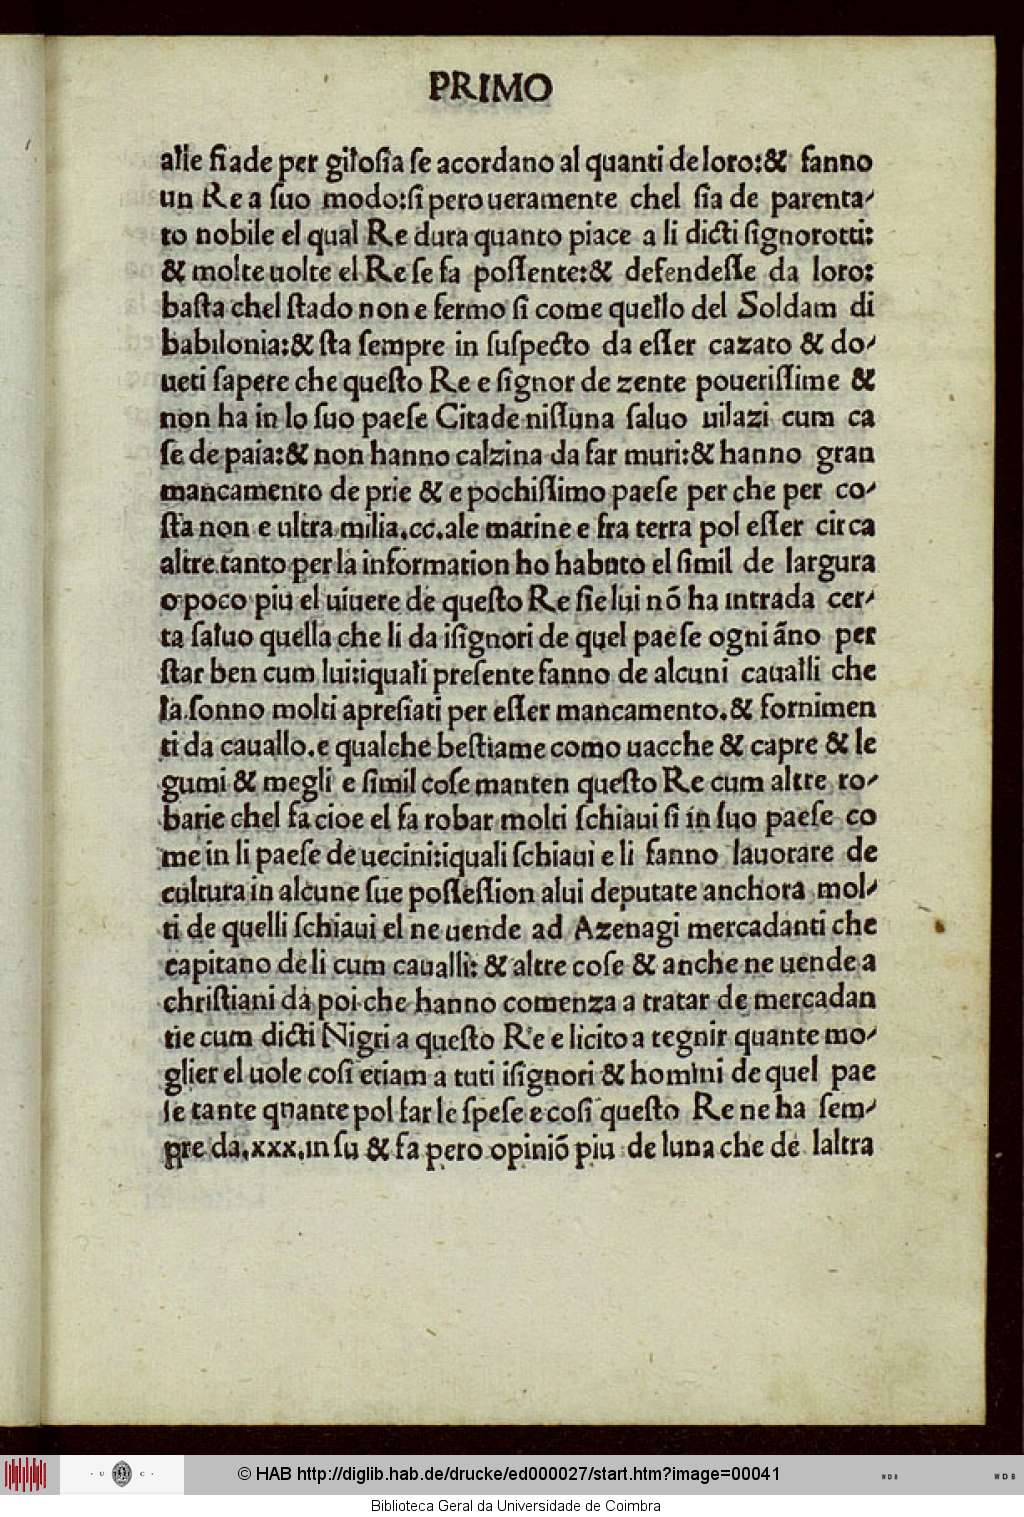 PRIMO
alle fiade per gilosia se acordano al quanti de loro:& fanno
un Re a suo modo:si pero ueramente chel sia de parenta-
to nobile el qual Re dura quanto piace a li dicti signorotti:
& molte uolte el Re se fa possente:& defendesse da loro:
basta chel stado non e fermo si come quello del Soldam di
babilonia:& sta sempre in suspecto da esser cazato & do-
ueti sapere che questo Re e signor de zente pouerissime &
non ha in lo suo paese Citade nissuna saluo uilazi cum ca
se de paia:& non hanno calzina da far muri:& hanno gran
mancamento de prie & e pochissimo paese per che per co-
sta non e ultra milia.cc.ale marine e fra terra pol esser circa
altre tanto per la information ho habuto el simil de largura
o poco piu el uiuere de questo Re sie lui nõ ha intrada cer-
ta saluo quella che li da isignori de quel paese ogni ãno per
star ben cum lui:iquali presente fanno de alcuni caualli che
la sonno molti apresiati per esser mancamento.& fornimen
ti da cauallo.e qualche bestiame como uacche & capre & le
gumi & megli e simil cose manten questo Re cum altre ro-
barie chel fa cioe el fa robar molti schiaui si in suo paese co
me in li paese de uecini:iquali schiaui e li fanno lauorare de
cultura in alcune sue possession alui deputate anchora mol-
ti de quelli schiaui el ne uende ad Azenagi mercadanti che
capitano de li cum caualli: & altre cose & anche ne uende a
christiani da poi che hanno comenza a tratar de mercadan
tie cum dicti Nigri a questo Re e licito a tegnir quante mo-
glier el uole cosi etiam a tuti isignori & homini de quel pae
se tante quante pol far le spese e cosi questo Re ne ha sem-
pre da.xxx.in su & fa pero opiniõ piu de luna che de laltra
© HAB http://diglib.hab.de/drucke/ed000027/start.htm?image=00041
· U C ·
WDB
WDB
Biblioteca Geral da Universidade de Coimbra